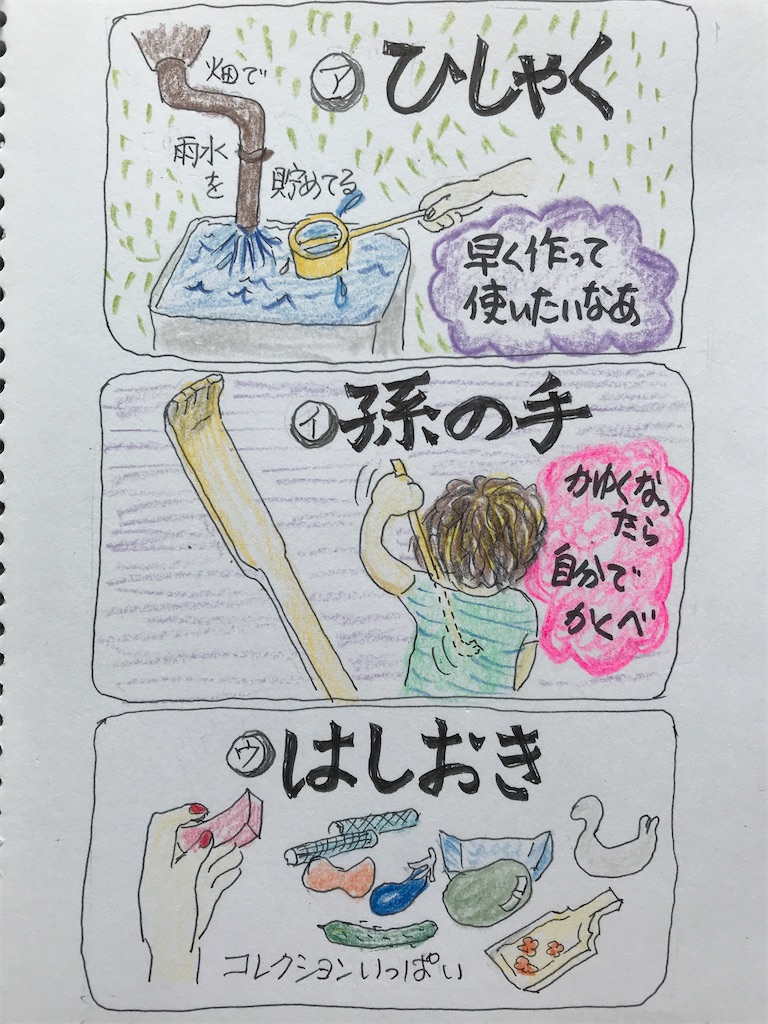 ア ひしゃく
畑で
雨水
を 貯めてる
早く作って
使いたいなあ
イ 孫の手
かゆくなっ
たら
自分で
かくべ
ウ はしおき
コレクションいっぱい